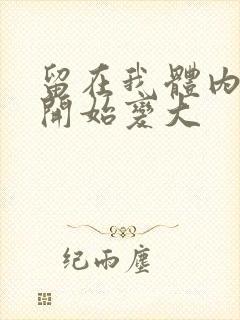 留在我體內
開始變大
纪雨尘